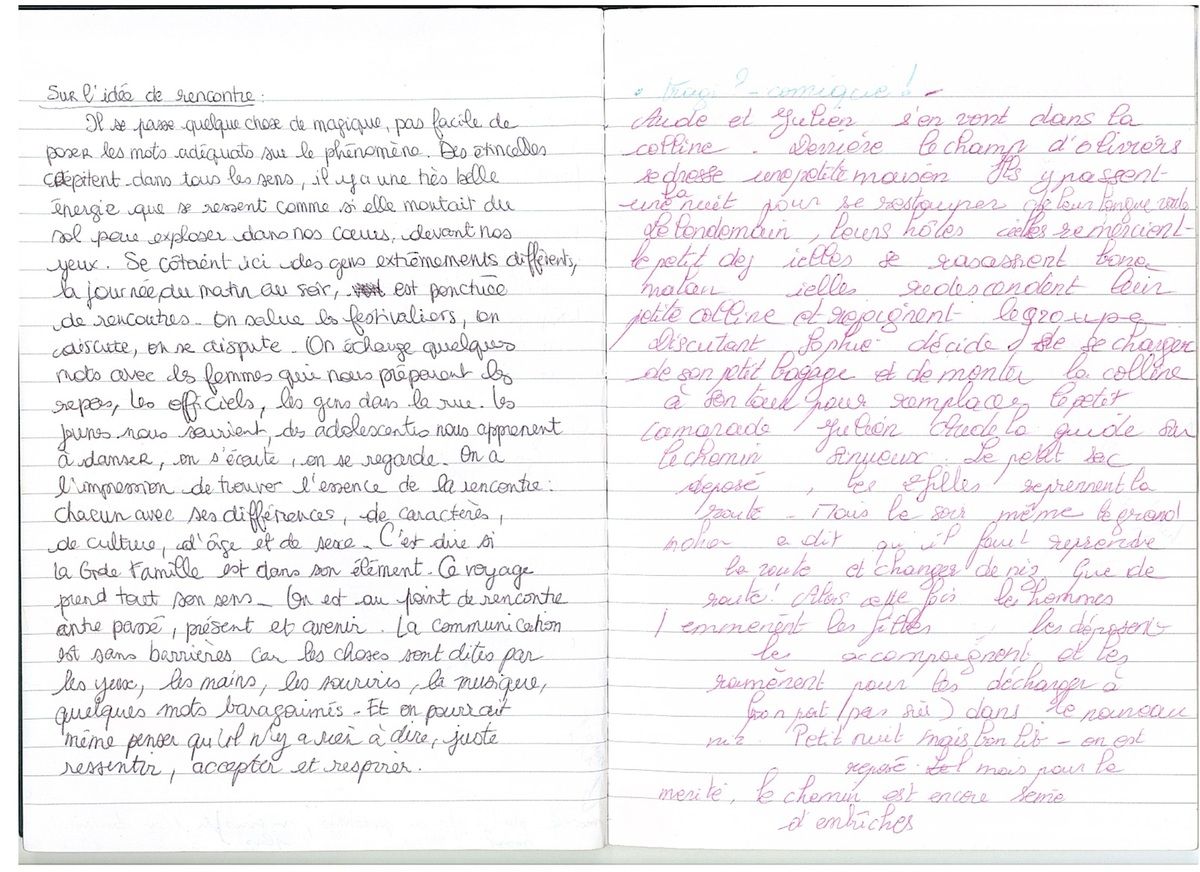 Sur l'idée de rencontre :
Il se passe quelque chose de magique, pas facile de
poser les mots adéquats sur le phénomène. Des étincelles
crépitent dans tous les sens, il y a une très belle
énergie que se ressent comme si elle montait du
sol pour exploser dans nos cœurs, devant nos
yeux. Se côtoient ici des gens extrêmements différents,
la journée, du matin au soir, est ponctuée
de rencontres. On salue les festivaliers, on
discute, on se dispute. On échange quelques
mots avec les femmes qui nous préparent les
repas, les officiels, les gens dans la rue. Les
jeunes nous sourient, des adolescentes nous apprennent
à danser, on s'écoute, on se regarde. On a
l'impression de trouver l'essence de la rencontre :
chacun avec ses différences, de caractères,
de culture, d'âge et de sexe. C'est dire si
la Grde Famille est dans son élément. Ce voyage
prend tout son sens - On est au point de rencontre
entre passé, présent et avenir. La communication
est sans barrières car les choses sont dites par
les yeux, les mains, les sourires, la musique,
quelques mots baragouinés - Et on pourrait
même penser qu'il n'y a rien à dire, juste
ressentir, accepter et respirer.
• tragi ? - comique ! -
Aude et Julien s'en vont dans la
colline. Derrière le champ d'oliviers
se dresse une petite maison Ils y passent
une nuit pour se restaurer de leur longue
Le lendemain, leurs hôtes ielles remercient
le petit dej ielles se
ielles redescendent leur
petite colline et rejoignent le groupe
Discutant Sophie décide de se charger
de son petit bagage et de monter la colline
à son tour pour remplacer le petit
camarade Julien Aude la guide sur
le chemin sinueux. Le petit sac
déposé, les 2 filles reprennent la
route - Mais le soir même le grand
a dit qu'il faut reprendre
la route et changer de nid. Que de
route ! Alors cette fois les hommes
emmenent les filles, les déposent
les accompagnent et les
ramènent pour les décharger à
bon port (pas sûr) dans le nouveau
nid. Petit nuit mais bon lit - on est
reposé mais pour le
mérité, le chemin est encore semé
d'embûches